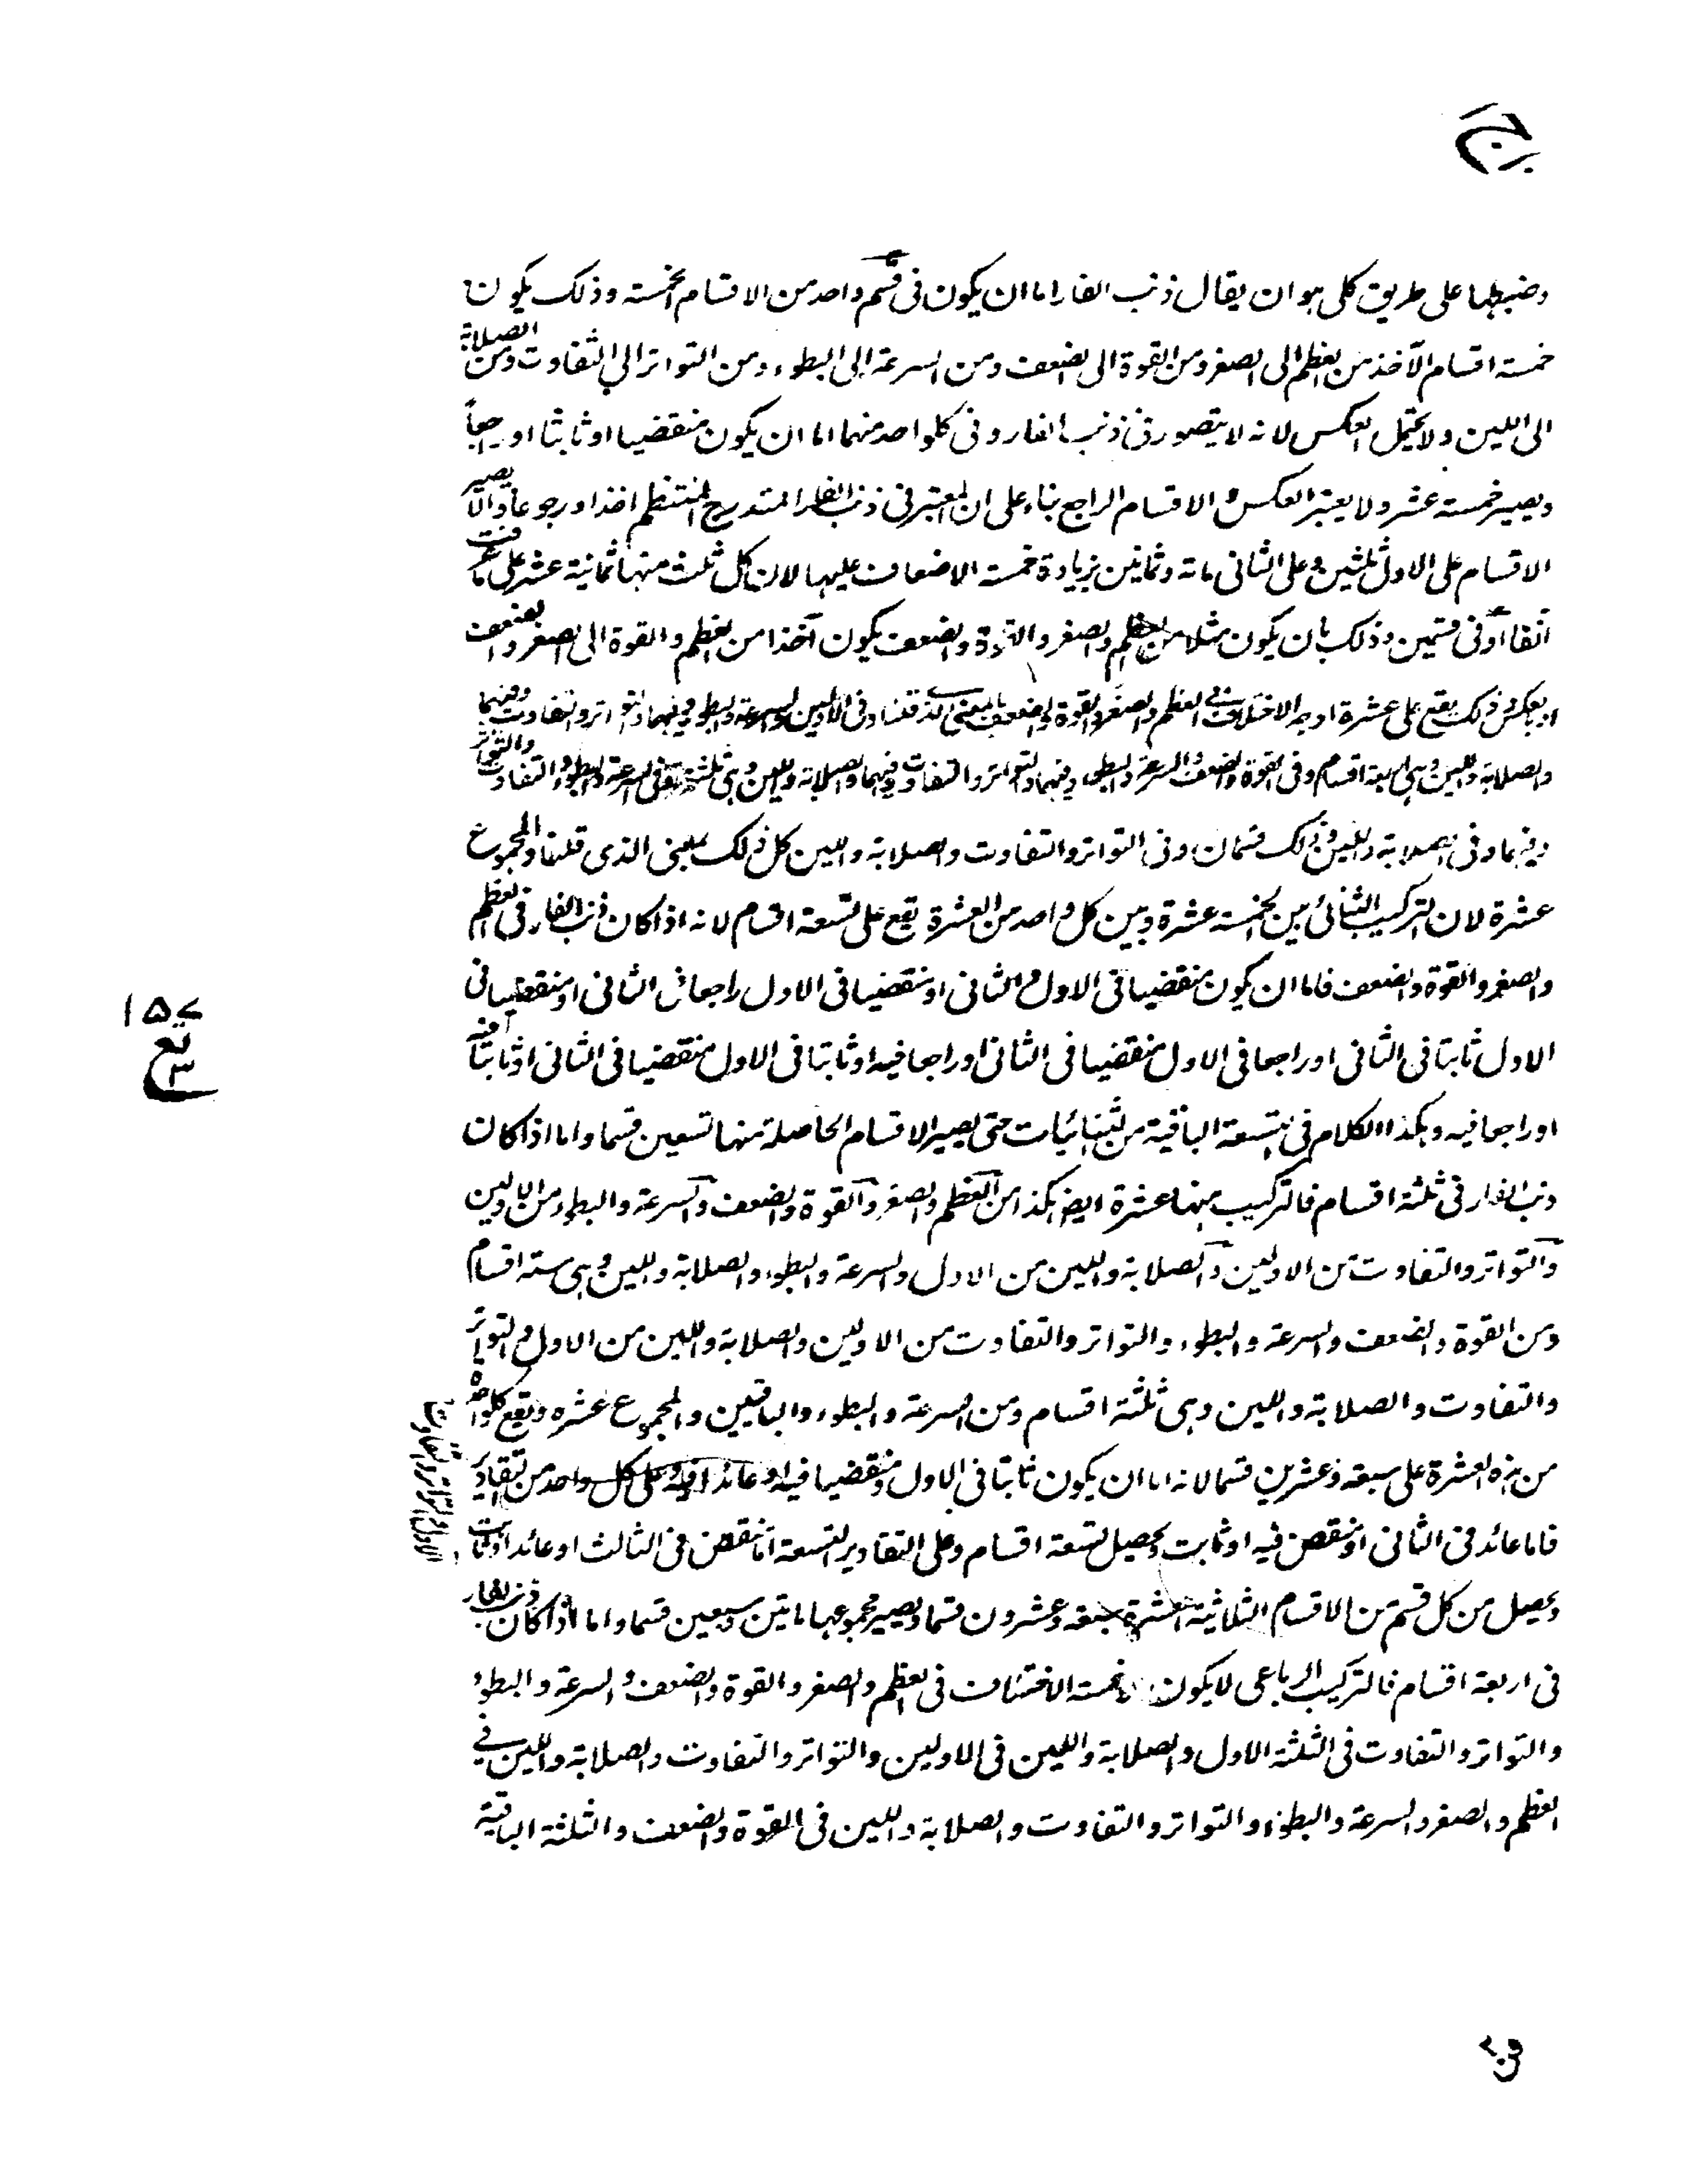 وضبطها على طريق كلى هو ان يقال ذنب الفار اما ان يكون فى قسم واحد من الاقسام الخمسة وذلك يكون
خمسة اقسام الآخذ من العظم الى الصغر ومن القوة الى الضعف ومن السرعة الى البطوء ومن التواتر الى التفاوت ومن الصلابة
الى اللين ولا يحتمل العكس لانه لا يتصور فى ذنب الفار وفى كلواحد منهما اما ان يكون منقضيا او ثابتا او راجعاً
ويصير خمسة عشر ولا يعتبر العكس الاقسام الراجع بناء على ان المعتبر فى ذنب الفار المتدرج المنتظم اخذا ورجوعا والا يصير
الاقسام على الاول ثلثين وعلى الثانى مائة وثمانين بزيادة خمسة الاضعاف عليها لان كل ثلث منها ثمانية عشر على ما عرفت
آنفا او فى قسمين وذلك بان يكون مثلا من العظم والصغر والقوة والضعف يكون آخذا من العظم والقوة الى الصغر والضعف
او بالعكس وذلك يقع على عشرة اوجه الاختلاف فى العظم والصغر والقوة والضعف بالمعنى الذى قلنا وفى الاولين والسرعة والبطوء وفيهما والتواتر والتفاوت وفيهما
والصلابة واللين وهى اربعة اقسام وفى القوة والضعف والسرعة والبطوء وفيهما والتواتر والتفاوت وفيهما والصلابة واللين وهى ثلثة وفى السرعة والبطوء والتواتر والتفاوت
وفيهما وفى الصلابة واللين وذلك قسمان وفى التواتر والتفاوت والصلابة واللين كل ذلك بالمعنى الذى قلنا والمجموع
عشرة لان التركيب الثنائى بين الخمسة عشرة وبين كل واحد من العشرة تقع على تسعة اقسام لانه اذا كان ذنب الفار فى العظم
والصغر والقوة والضعف فاما ان يكون منقضيا فى الاول والثانى او منقضيا فى الاول راجعا فى الثانى او منقضيا فى
الاول ثابتا فى الثانى او راجعا فى الاول منقضيا فى الثانى او راجعا فيه او ثابتا فى الاول منقضيا فى الثانى او ثابتا فيه
او راجعا فيه وهكذا الكلام فى التسعة الباقية من الثنائيات حتى يصير الاقسام الحاصلة منها تسعين قسما واما اذا كان
ذنب الفار فى ثلثة اقسام فالتركيب منها عشرة ايضا هكذا من العظم والصغر والقوة والضعف والسرعة والبطوء من الاولين
والتواتر والتفاوت من الاولين والصلابة واللين من الاول والسرعة والبطوء والصلابة واللين وهى ستة اقسام
ومن القوة والضعف والسرعة والبطوء والتواتر والتفاوت من الاولين والصلابة واللين من الاول والتواتر
والتفاوت والصلابة واللين وهى ثلثة اقسام ومن السرعة والبطوء والباقيين والمجموع عشره وتقع كلواحدة
من هذه العشرة على سبعة وعشرين قسما لانه اما ان يكون ثابتا فى الاول ومنقضيا فيه او عائدا فيه وعلى كل واحد من التقادير
فاما عائد فى الثانى او منقض فيه او ثابت يحصل تسعة اقسام وعلى التقادير التسعة اما منقض فى الثالث او عائد او ثابت
ويحصل من كل قسم من الاقسام الثلاثية العشرة سبعة وعشرون قسما ويصير مجموعها مائتين وسبعين قسما واما اذا كان ذنب الفار
فى اربعة اقسام فالتركيب الرباعى لا يكون خمسة الاختلاف فى العظم والصغر والقوة والضعف والسرعة والبطوء
والتواتر والتفاوت فى الثلثة الاول والصلابة واللين فى الاولين والتواتر والتفاوت والصلابة واللين فى
العظم والصغر والسرعة والبطوء والتواتر والتفاوت والصلابة واللين فى القوة والضعف والثلثة الباقية
۱۵۷